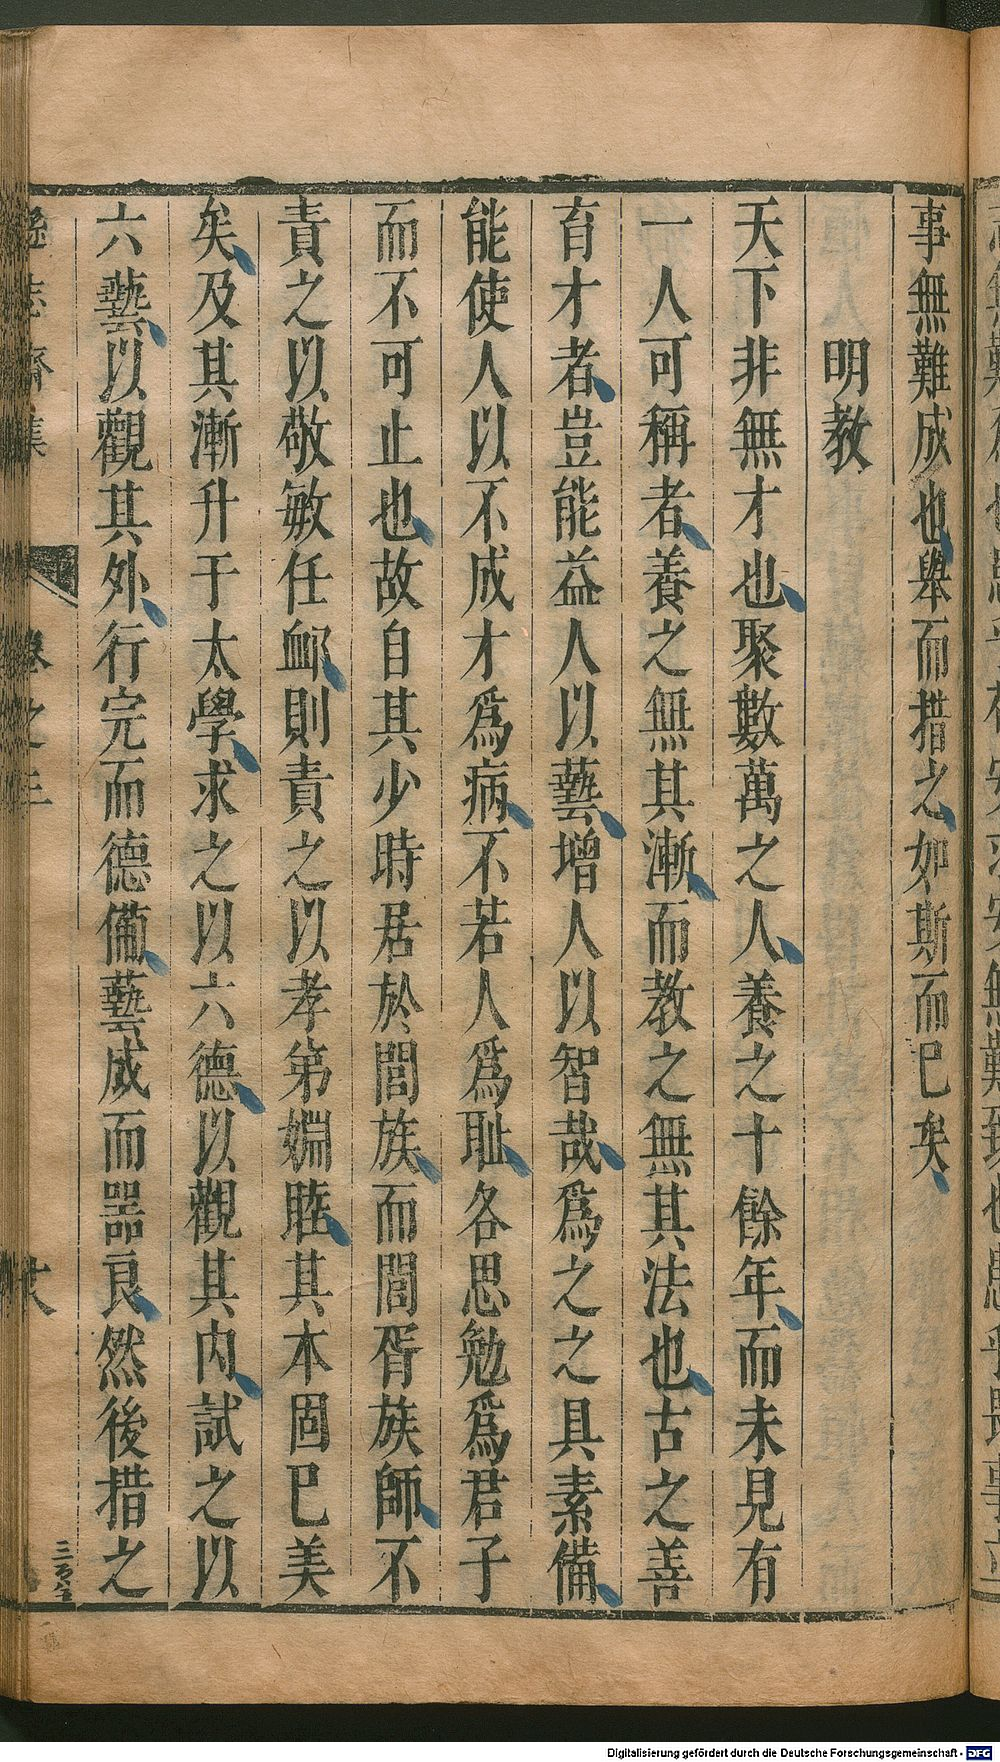 事無難成也舉而措之如斯而已矣
明教
天下非無才也聚數萬之人養之十餘年而未見有
一人可稱者養之無其漸而教之無其法也古之善
育才者豈能益人以藝增人以智哉爲之之具素備
能使人以不成才爲病不若人爲恥各思勉爲君子
而不可止也故自其少時居於閭族而閭胥族師不
責之以敬敏任䘏則責之以孝第婣睦其本固已美
矣及其漸升于太學求之以六德以觀其內試之以
六藝以觀其外行完而德備藝成而器良然後措之
遜志齋集 卷之三
Digitalisierung gefördert durch die Deutsche Forschungsgemeinschaft - DFG